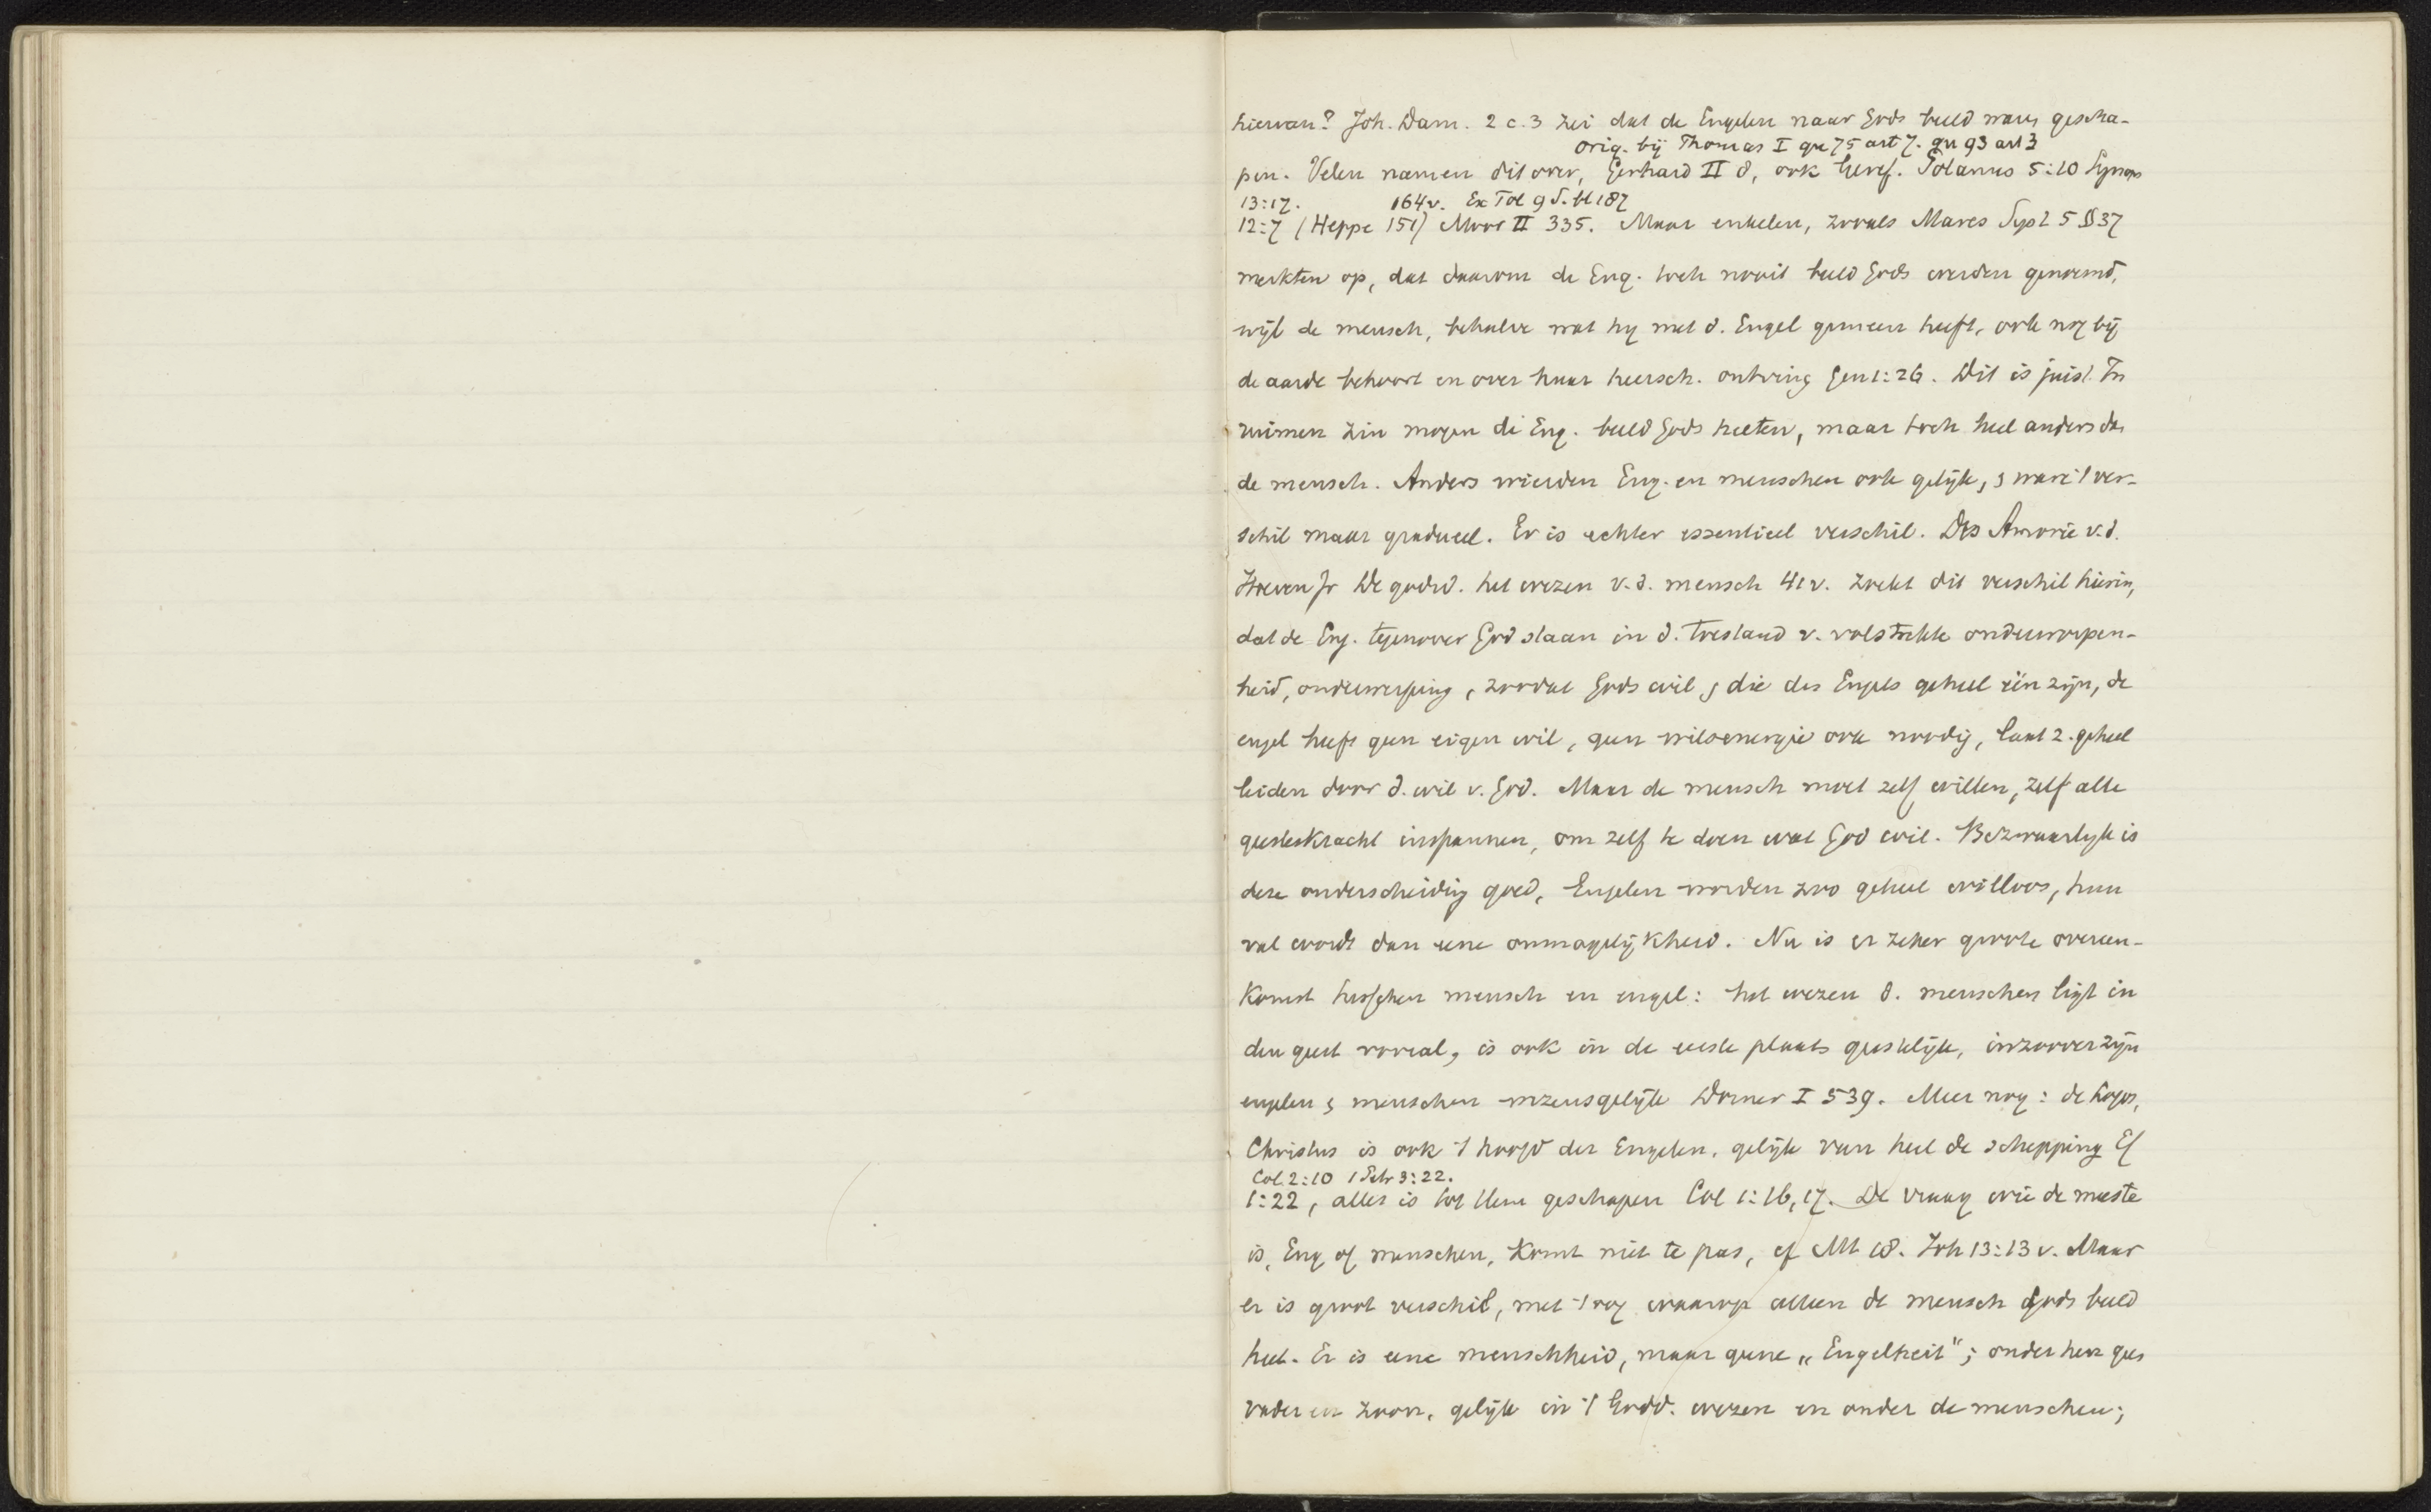 hiervan? Joh. Dam. 2 c. 3 zei dat de Engelen naar Gods beeld waren gescha-
orig. bij Thomas I qu 75 art 7. qu 93 art 3
pen. Velen namen dit over, Gerhard II 8, ook Geref. Polanus 5:10 Synops
13:17. 164v. Ex Tol 9 S. bl 187
12:7 (Heppe 151) Moor II 335. Maar enkelen, zooals Mares Syst 5 § 37
merkten op, dat daarom de Eng. toch nooit beeld Gods werden genoemd,
wijl de mensch, behalve wat hij met d. Engel gemeen heeft, ook nog bij
de aarde behoort en over haar heersch. ontving Gen 1:26. Dit is juist. In
ruimen zin mogen de Eng. beeld Gods heeten, maar toch heel anders dan
de mensch. Anders wierden Eng. en menschen ook gelijk, & ware 't ver-
schil maar gradueel. Er is echter essentieel verschil. Des Amorie v. d.
Hoeven Jr De godsd. het wezen v. d. mensch 41v. zoekt dit verschil hierin,
dat de Eng. tegenover God staan in d. toestand v. volstrekte onderworpen-
heid, onderwerping, zoodat Gods wil & die des Engels geheel één zijn, de
engel heeft geen eigen wil, geen wilsenergie ook noodig, laat z. geheel
leiden door d. wil v. God. Maar de mensch moet zelf willen, zelf alle
geesteskracht inspannen, om zelf te doen wat God wil. Bezwaarlijk is
deze onderscheiding goed, Engelen worden zoo geheel willoos, hun
val wordt dan eene onmogelijkheid. Nu is er zeker groote overeen-
komst tusschen mensch en engel: het wezen d. menschen ligt in
den geest vooral, is ook in de eerste plaats geestelijk, inzoover zijn
engelen & menschen wezensgelijk Dorner I 539. Meer nog: de Logos,
Christus is ook 't hoofd der Engelen, gelijk van heel de schepping Ef
Col. 2:10 1 Petr 3:22.
1:22, alles is tot Hem geschapen Col 1:16,17. De vraag wie de meeste
is, Eng of menschen, komt niet te pas, cf Mt 18. Joh 13:13 v. Maar
er is groot verschil, met 't oog waarop alleen de mensch Gods beeld
heet. Er is eene menschheid, maar geene „Engelheit"; onder hen geen
vader en zoon, gelijk in 't Godd. wezen en onder de menschen;